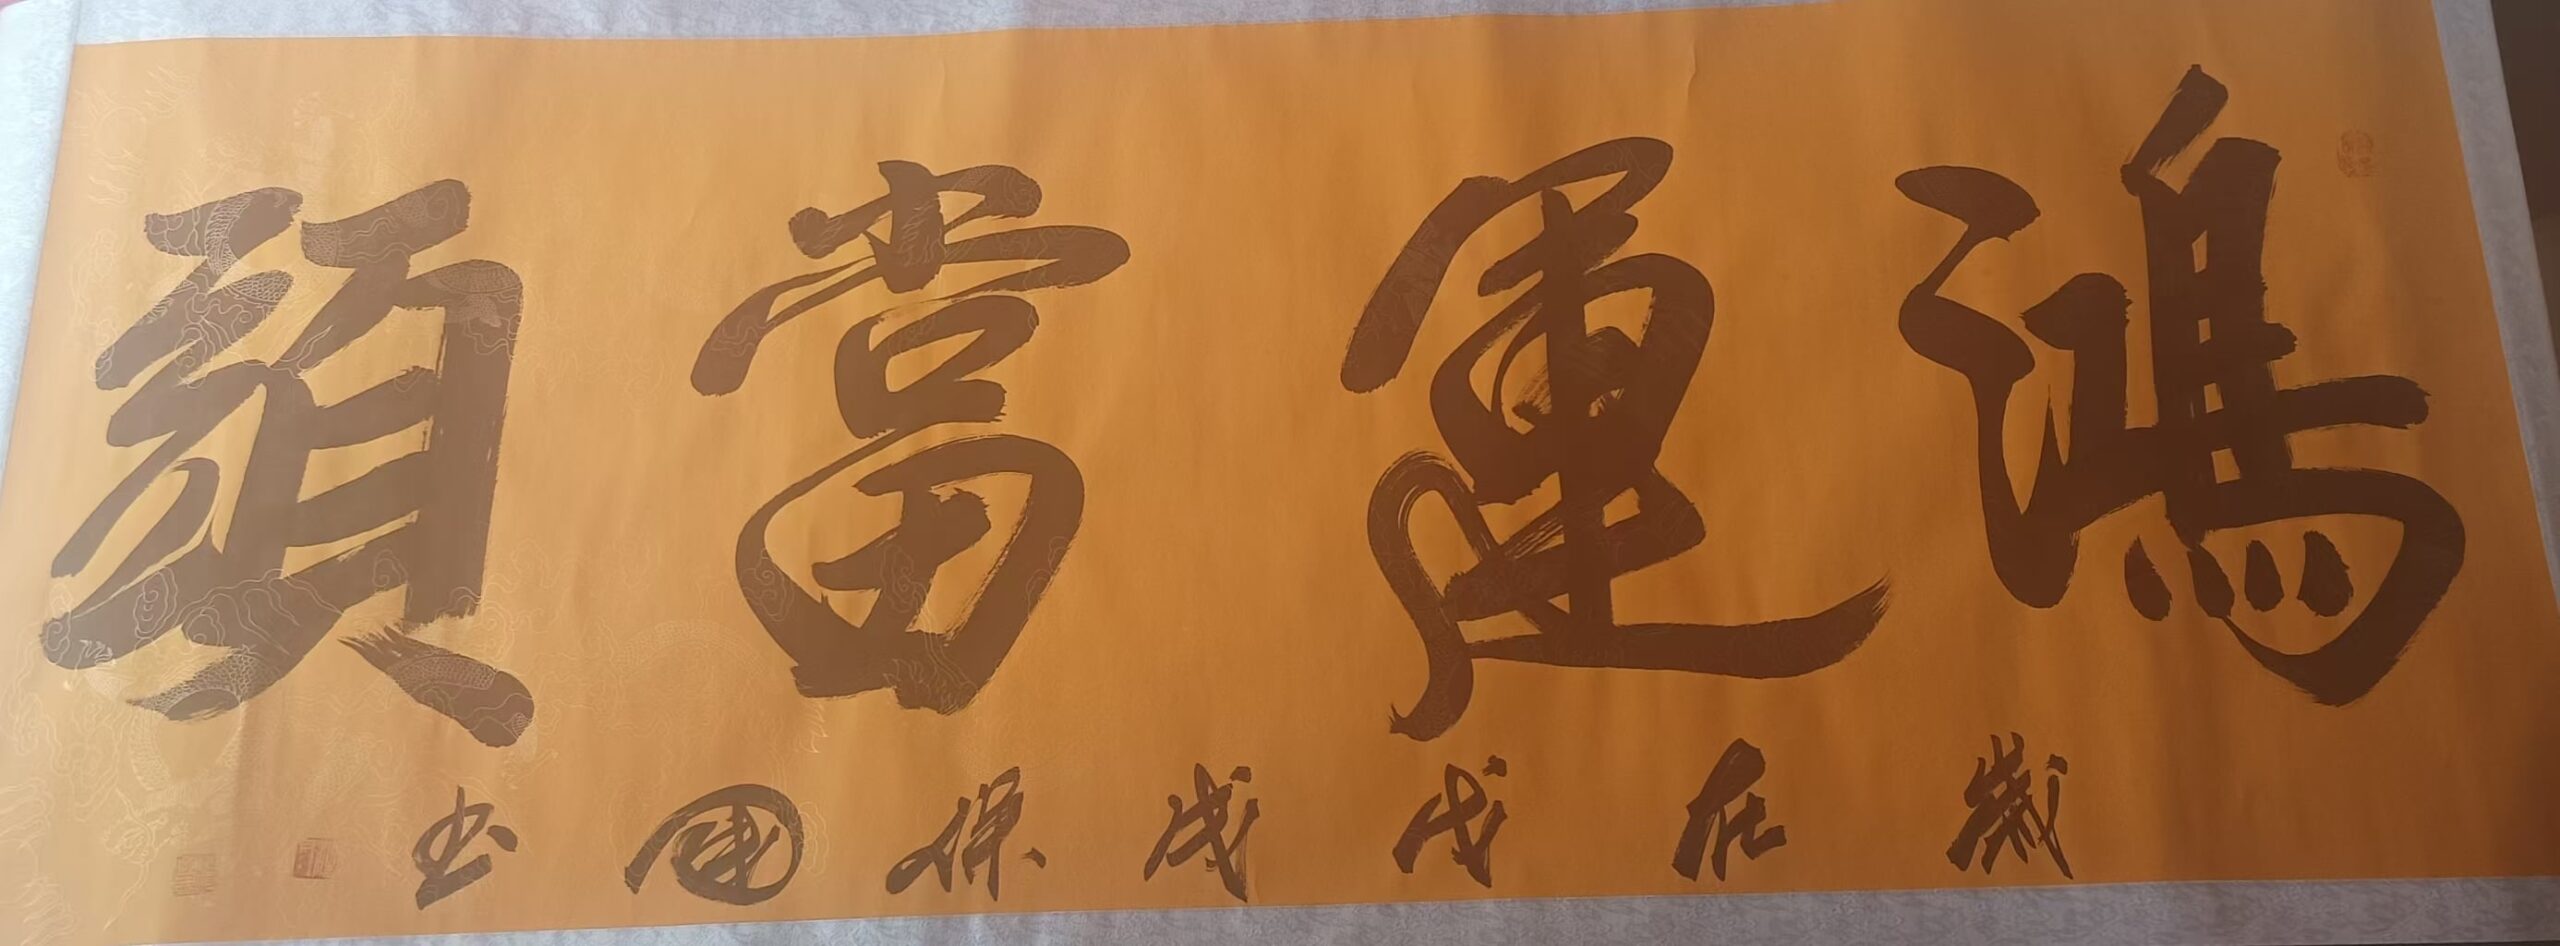 鴻運當頭
歲在戊戌保國书